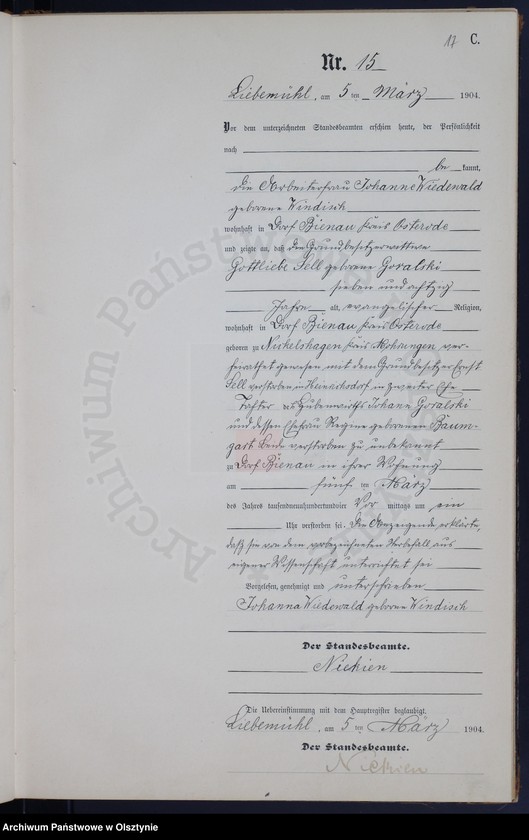 17 C.
Nr. 15
Liebemühl, am 5 ten März 1904.
Vor dem unterzeichneten Standesbeamten erschien heute, der Persönlichkeit
nach
be kannt,
die Arbeiterfrau Johanne Wiedewald
geborene Windisch
wohnhaft in Dorf Bienau Kreis Osterode
und zeigte an, daß die Grundbesitzerwittwe
Gottliebe Sell geborene Goralski
sieben und achtzig
Jahre alt, evangelischer Religion,
wohnhaft in Dorf Bienau Kreis Osterode
geboren zu Nickelshagen Kreis Mohrungen ver-
heirathet gewesen mit dem Grundbesitzer Ernst
Sell verstorben in in zweiter Ehe
Tochter des Johann Goralski
und dessen Ehefrau Regine geborenen Baum-
gart Beide verstorben zu unbekannt
zu Dorf Bienau in ihrer Wohnung
am fünf ten März
des Jahres tausendneunhundertundvier Vor mittags um ein
Uhr verstorben sei. Die Anzeigende erklärte,
daß sie von dem vorbezeichneten Sterbefall aus
eigener Wissenschaft unterrichtet sei
Vorgelesen, genehmigt und unterschrieben
Johanna Wiedewald geboren Windisch
Der Standesbeamte.
Nickien
Die Uebereinstimmung mit dem Hauptregister beglaubigt.
Liebemühl, am 5 ten März 1904.
Der Standesbeamte.
Nickien
Archiwum Państwowe w Olsztynie